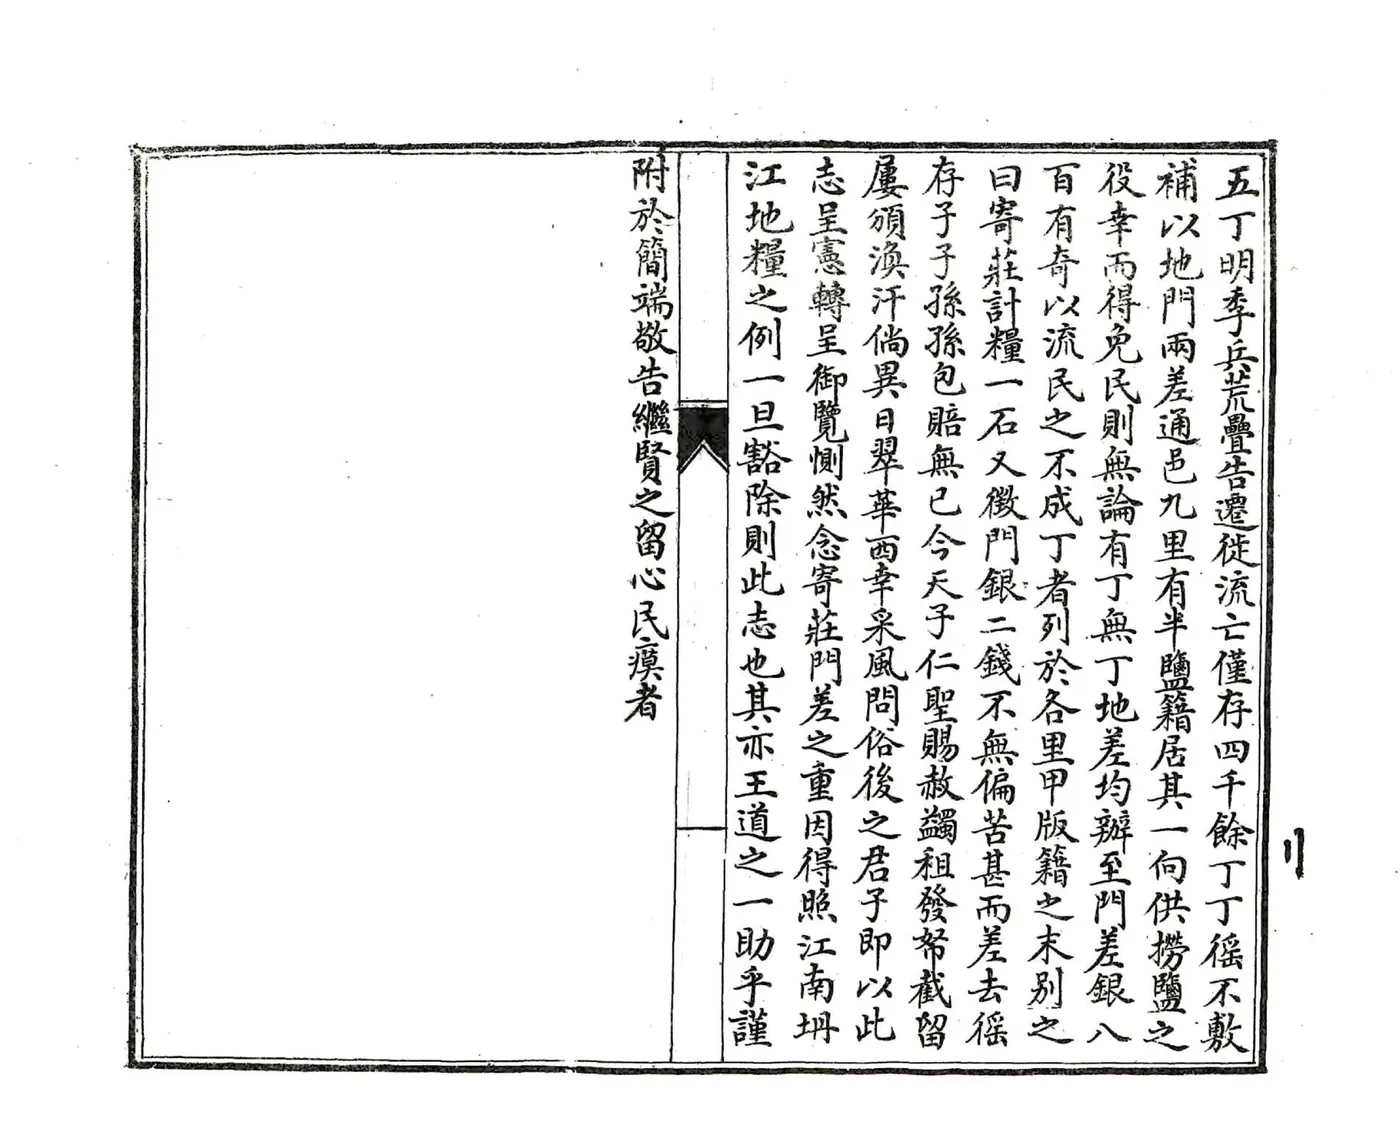 五丁明季兵荒疊告遷徙流亡僅存四千餘丁丁徭不敷
補以地門兩差通邑九里有半鹽籍居其一向供撈鹽之
役幸而得免民則無論有丁無丁地差均辦至門差銀八
百有奇以流民之不成丁者列於各里甲版籍之末別之
曰寄莊計糧一石又徵門銀二錢不無偏苦甚而差去徭
存子子孫孫包賠無已今天子仁聖賜赦蠲租發帑截留
屢頒渙汗倘異日翠華西幸采風問俗後之君子即以此
志呈憲轉呈御覽惻然念寄莊門差之重因得照江南坍
江地糧之例一旦豁除則此志也其亦王道之一助乎謹
附於簡端敬告繼賢之留心民瘼者